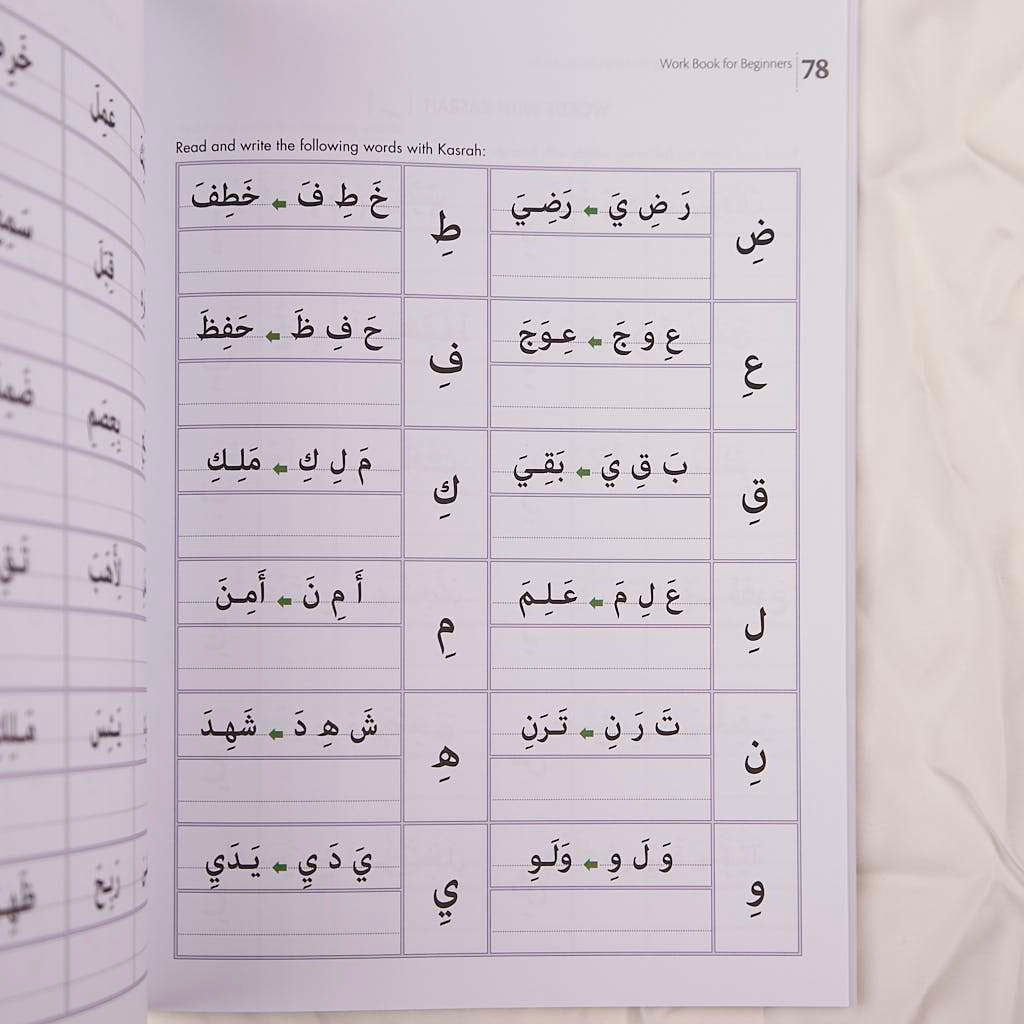 Work Book for Beginners 78
Read and write the following words with Kasrah:
ضِ
رَ ضِ يَ ← رَضِيَ
طِ
خَ طِ فَ ← خَطِفَ
عِ
عِ وَ جَ ← عِوَجَ
فِ
حَ فِ ظَ ← حَفِظَ
قِ
بَ قِ يَ ← بَقِيَ
كِ
مَ لِ كِ ← مَلِكِ
لِ
عَ لِ مَ ← عَلِمَ
مِ
أَ مِ نَ ← أَمِنَ
نِ
تَ رَ نِ ← تَرَنِ
هِ
شَ هِ دَ ← شَهِدَ
وِ
وَ لَ وِ ← وَلَوِ
يِ
يَ دَ يِ ← يَدَيِ
عَمِلَ
قَبِلَ
بَئِسَ